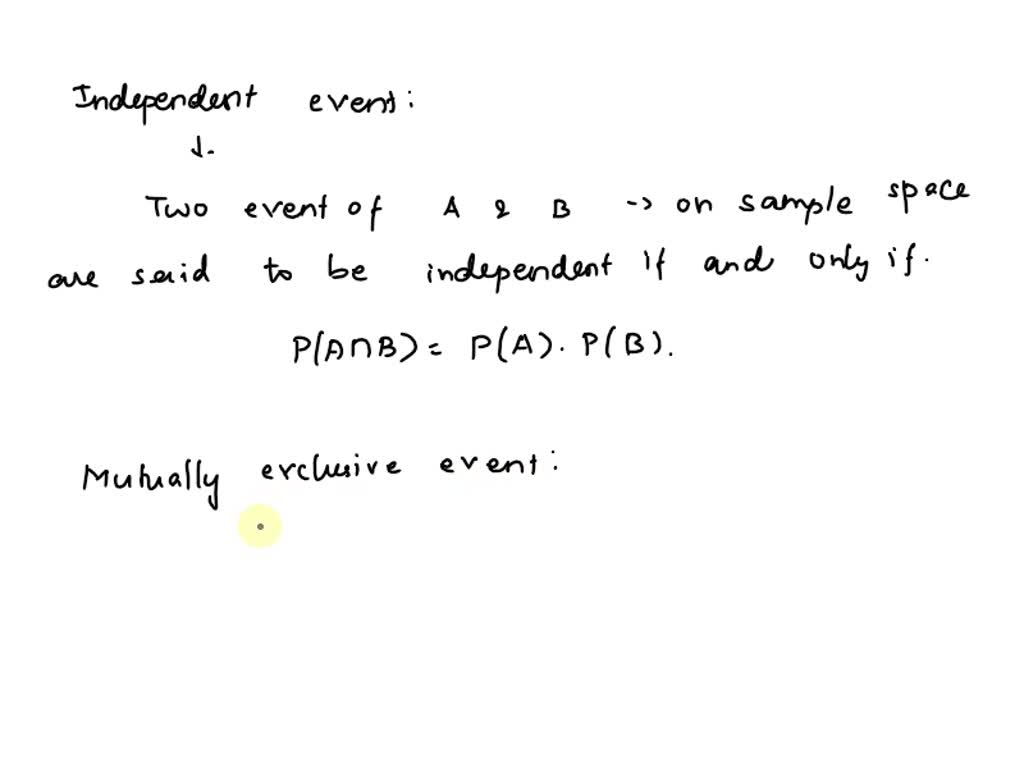 Independent event:
↓.
Two event of A & B -> on sample space
are said to be independent if and only if.
P(A∩B) = P(A). P(B).
Mutually exclusive event: